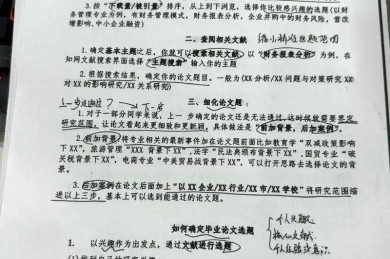 3. 按"下载量/被引量"排序，从上到下浏览，选择你比较感兴趣的选题（以财
务管理专业为例，有财务管理模式，财务报表分析，企业并购中的财务风险，营改
增影响，中小企业融资）
二、查阅相关文献 缩小精准选题范围
1. 确定基本主题之后，你就可以搜索相关文献了，以"财务报表分析"为例，在
知网文献搜索界面选择"主题搜索"输入你的主题
2. 根据搜索结果，确定你的论文题目，一般为（XX 分析/XX 问题与对策研究 XX
对 XX 的影响研究/XX 关系研究）
三、细化论文题：
1. 对于一部分同学来说，上一步确定的论文还是无法通过，这时候就需要界定
研究范围，让论文看起来更细致和更新颖，具体做法是"前加背景，后加案例"。
2. 前加背景/将专业相关的最新事件加在论文题前面比如教育学"双减政策影响
下 XX"，旅游管理"XXX 背景下 XX"，法学"民法典颁布背景下 XX"，国贸专业"碳
关税背景下 XX"，电商专业"中美贸易战背景下 XX"，可以打开思路去选择论文的背
景。
3. 后加案例在论文后面加上"以 XX 企业/XX 行业/XX 市/XX 学校"将研究范围缩
进以上三步，基本上可以选到能通过的论文题。
如何确定毕业论文选题
1. 以兴趣作为出发点，通过文献进行选题